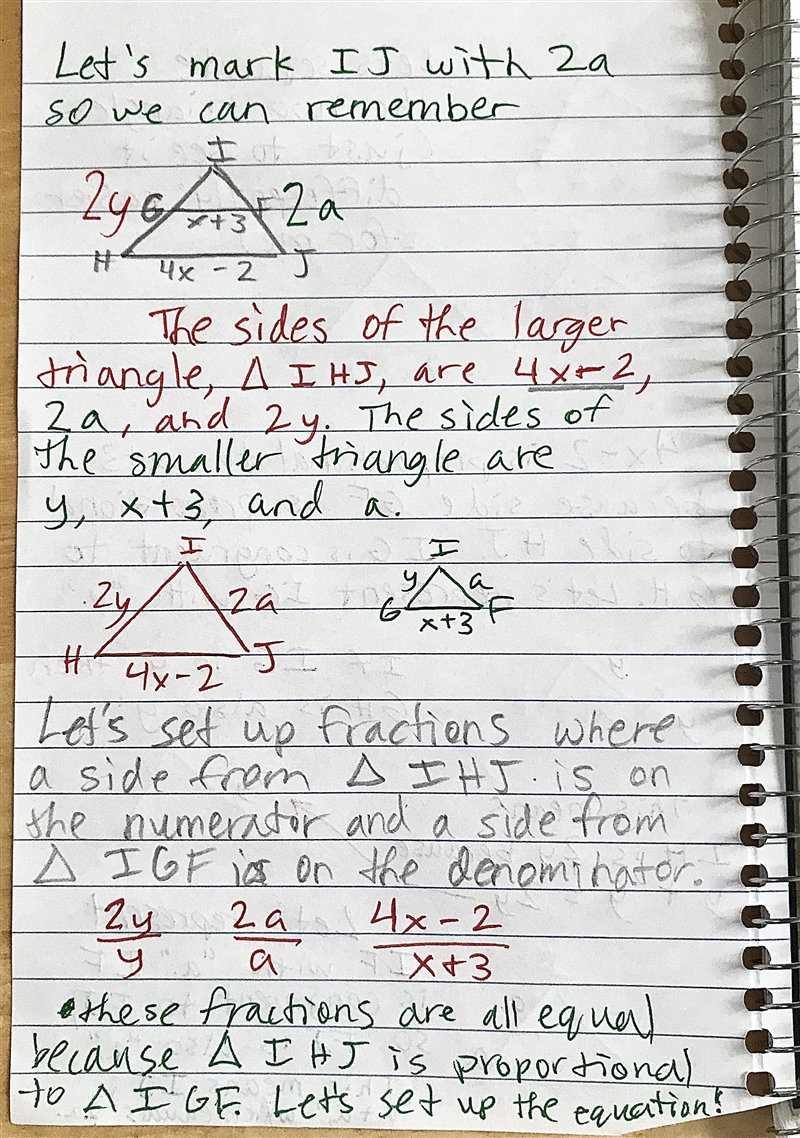 Let's mark IJ with 2a
so we can remember
I
2y G F 2a
x+3
H 4x-2 J
The sides of the larger
triangle, Δ IHJ, are 4x-2,
2a, and 2y. The sides of
the smaller triangle are
y, x+3, and a.
I I
2y 2a y a
G x+3 F
H 4x-2 J
Let's set up fractions where
a side from Δ IHJ is on
the numerator and a side from
Δ IGF is on the denominator.
2y/y 2a/a 4x-2/x+3
these fractions are all equal
because Δ IHJ is proportional
to Δ IGF. Let's set up the equation!